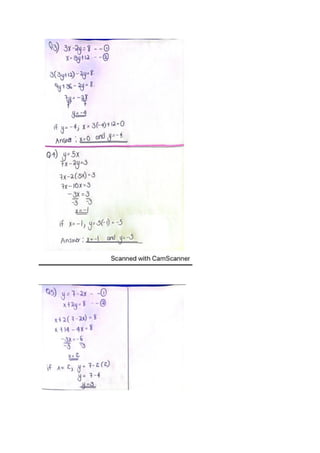 Q3) 3x-2y=8 --①
x=3y+12 --②
3(3y+12)-2y=8
9y+36-2y=8
7y=-28
7 7
y=-4
if y=-4, x=3(-4)+12=0
Answer: x=0 and y=-4
Q4) y=5x
7x-2y=3
7x-2(5x)=3
7x-10x=3
-3x=3
-3 -3
x=-1
if x=-1, y=5(-1)=-5
Answer: x=-1 and y=-5
Scanned with CamScanner
Q5) y=7-2x --①
x+2y=8 --②
x+2(7-2x)=8
x+14-4x=8
-3x=-6
-3 -3
x=2
if x=2, y=7-2(2)
y=7-4
y=3